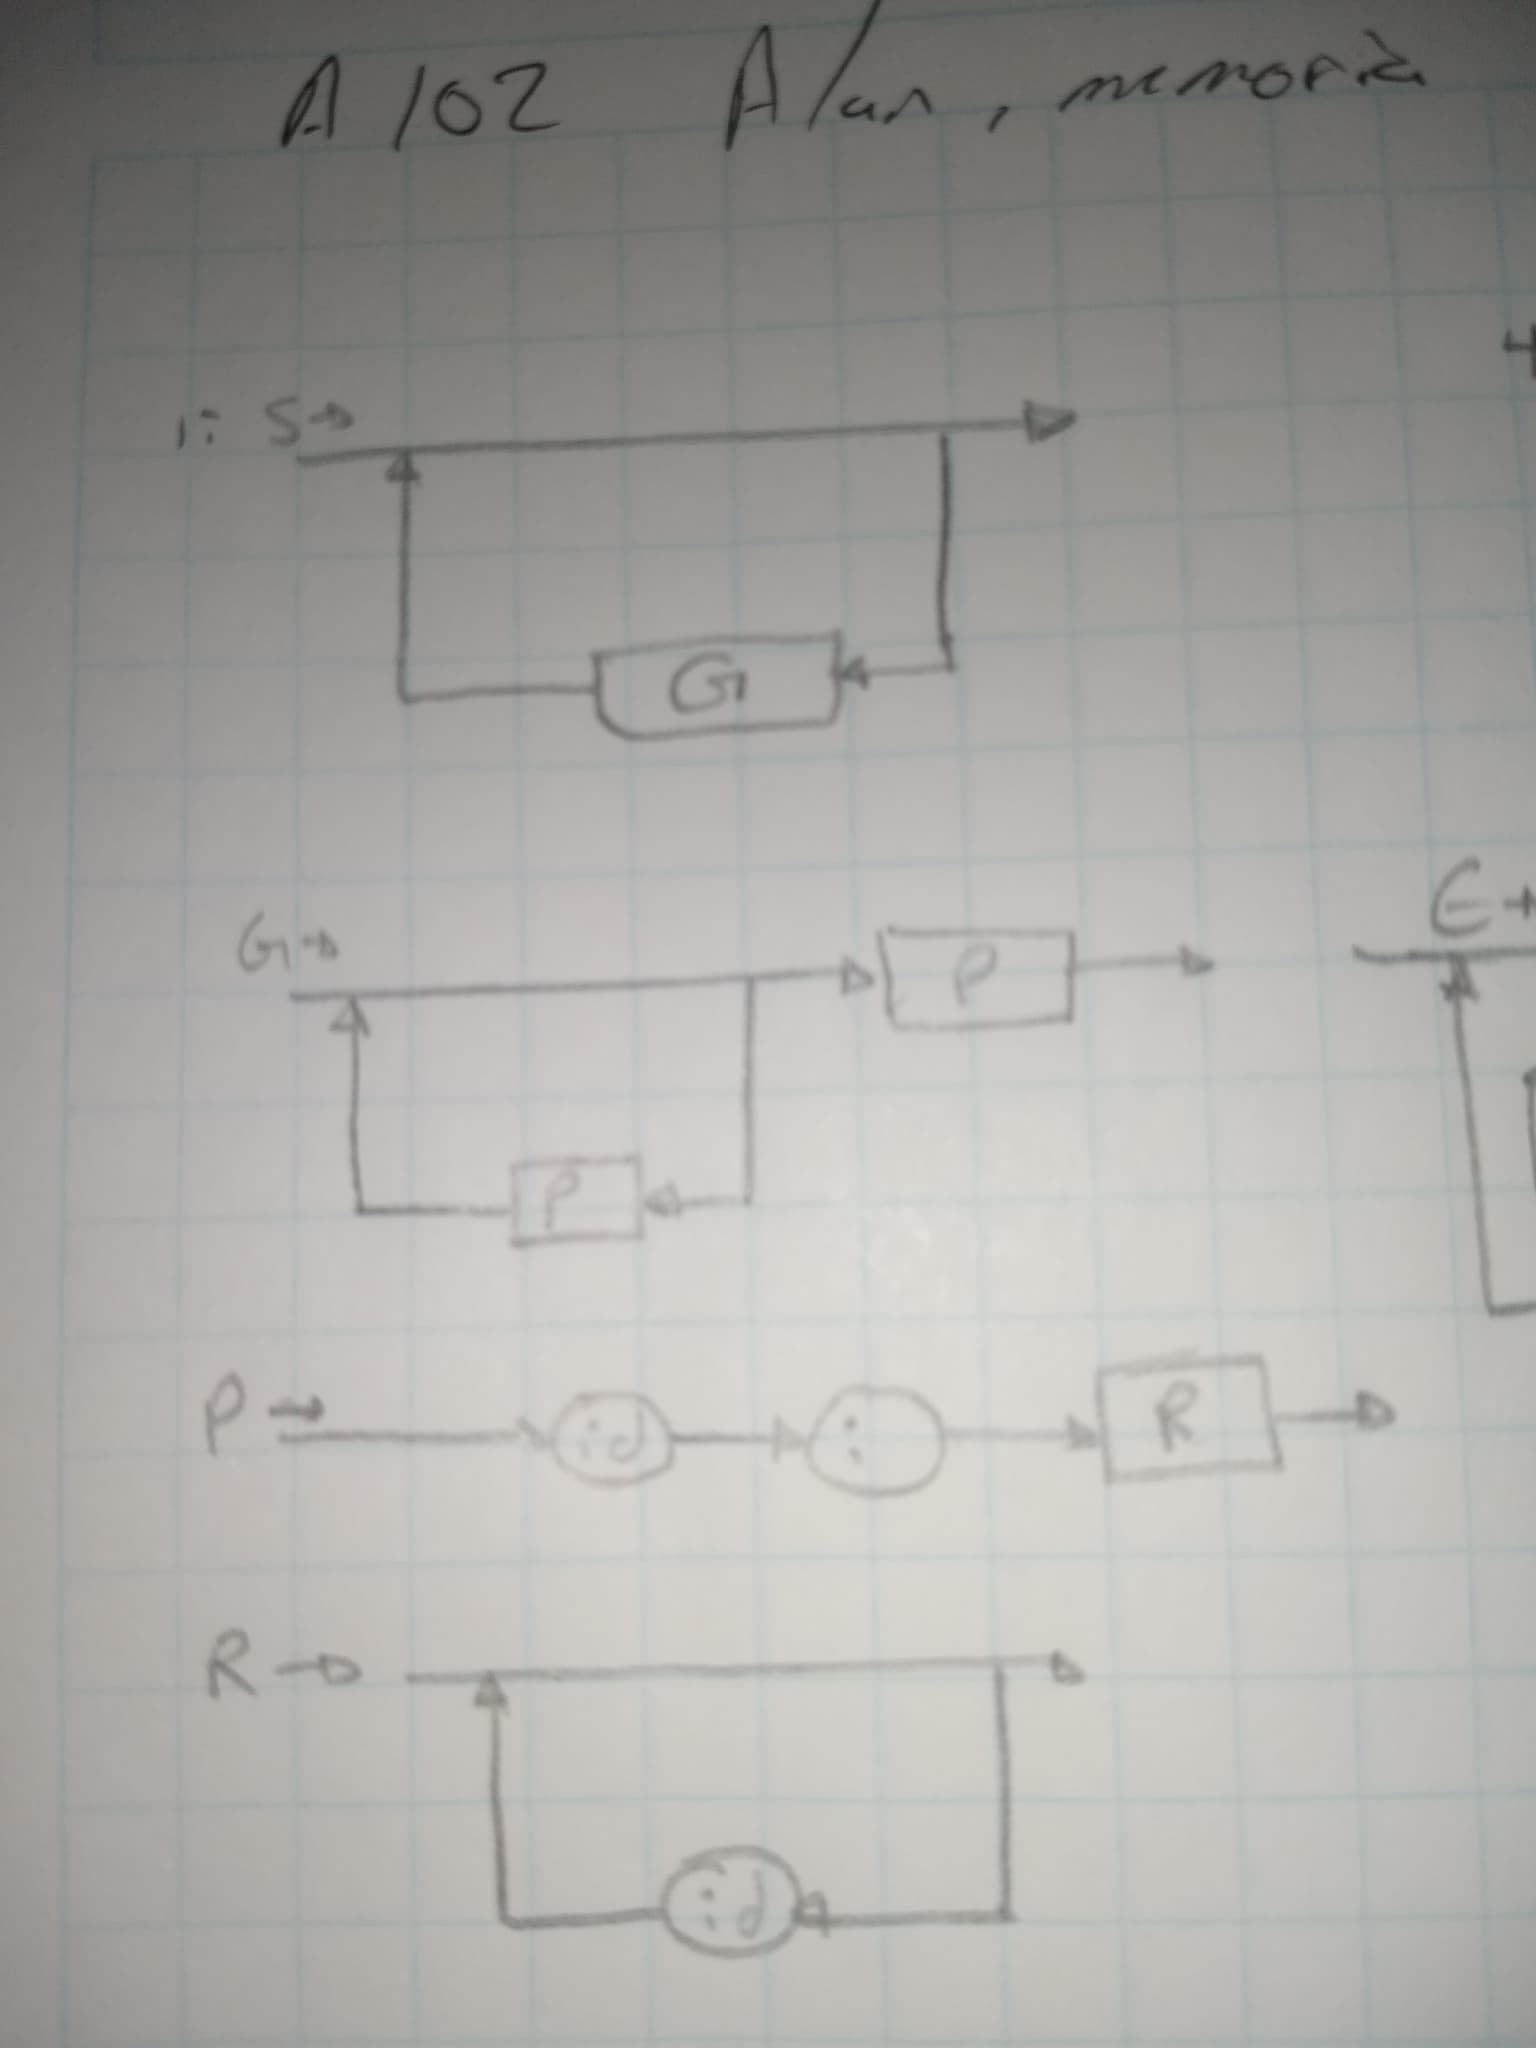 A 102 Alan, memoria
1: S→
G
G→
P
E→
P
P→ id : R
R→
id